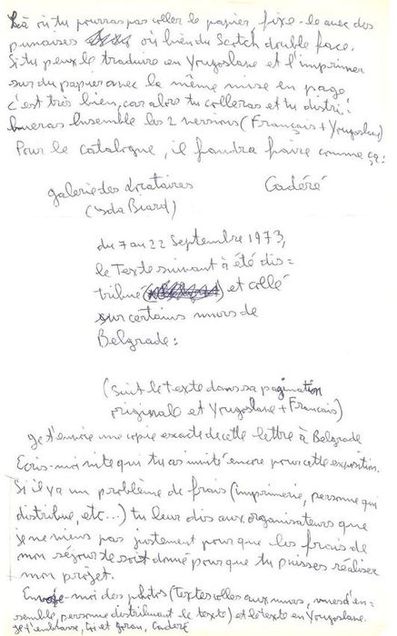 Là où tu pourras pas coller le papier, fixe-le avec des
punaises où bien du Scotch double face.
Si tu peux le traduire en Yougoslave et l'imprimer
sur du papier avec la même mise en page
c'est très bien, car alors tu colleras et tu distri-
bueras ensemble les 2 versions (Français + Yougoslave)
Pour le catalogue, il faudra faire comme ça:
galerie des locataires Cadéré
(Ida Biard)
du 7 au 22 Septembre 1973,
le Texte suivant à été dis=
tribué et collé
sur certains murs de
Belgrade:
(suit le texte dans sa pagination
originale et Yougoslave + Français)
Je t'envoie une copie exacte de cette lettre à Belgrade
Ecris-moi vite qui tu as invité encore pour cette exposition.
Si il y a un problème de frais (imprimerie, personne qui
distribue, etc...) tu leur dis aux organisateurs que
je ne viens pas justement pour que les frais de
mon séjour te soit donné pour que tu puisses réaliser
mon projet.
Envoie-moi des photos (textes collés aux murs, murs d'en=
semble, personne distribuant le texte) et le texte en Yougoslave.
Je t'embrasse, toi et Goran, Cadéré